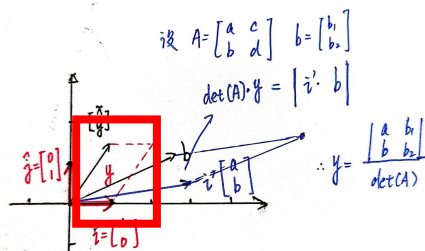 设 A=[a c; b d] b=[b₁; b₂]
det(A)·y = |i' · b|
[x; y]
ĵ=[0; 1]
y
b
i'[a; b]
i=[ 0]
∴ y = |a b₁; b b₂| / det(A)